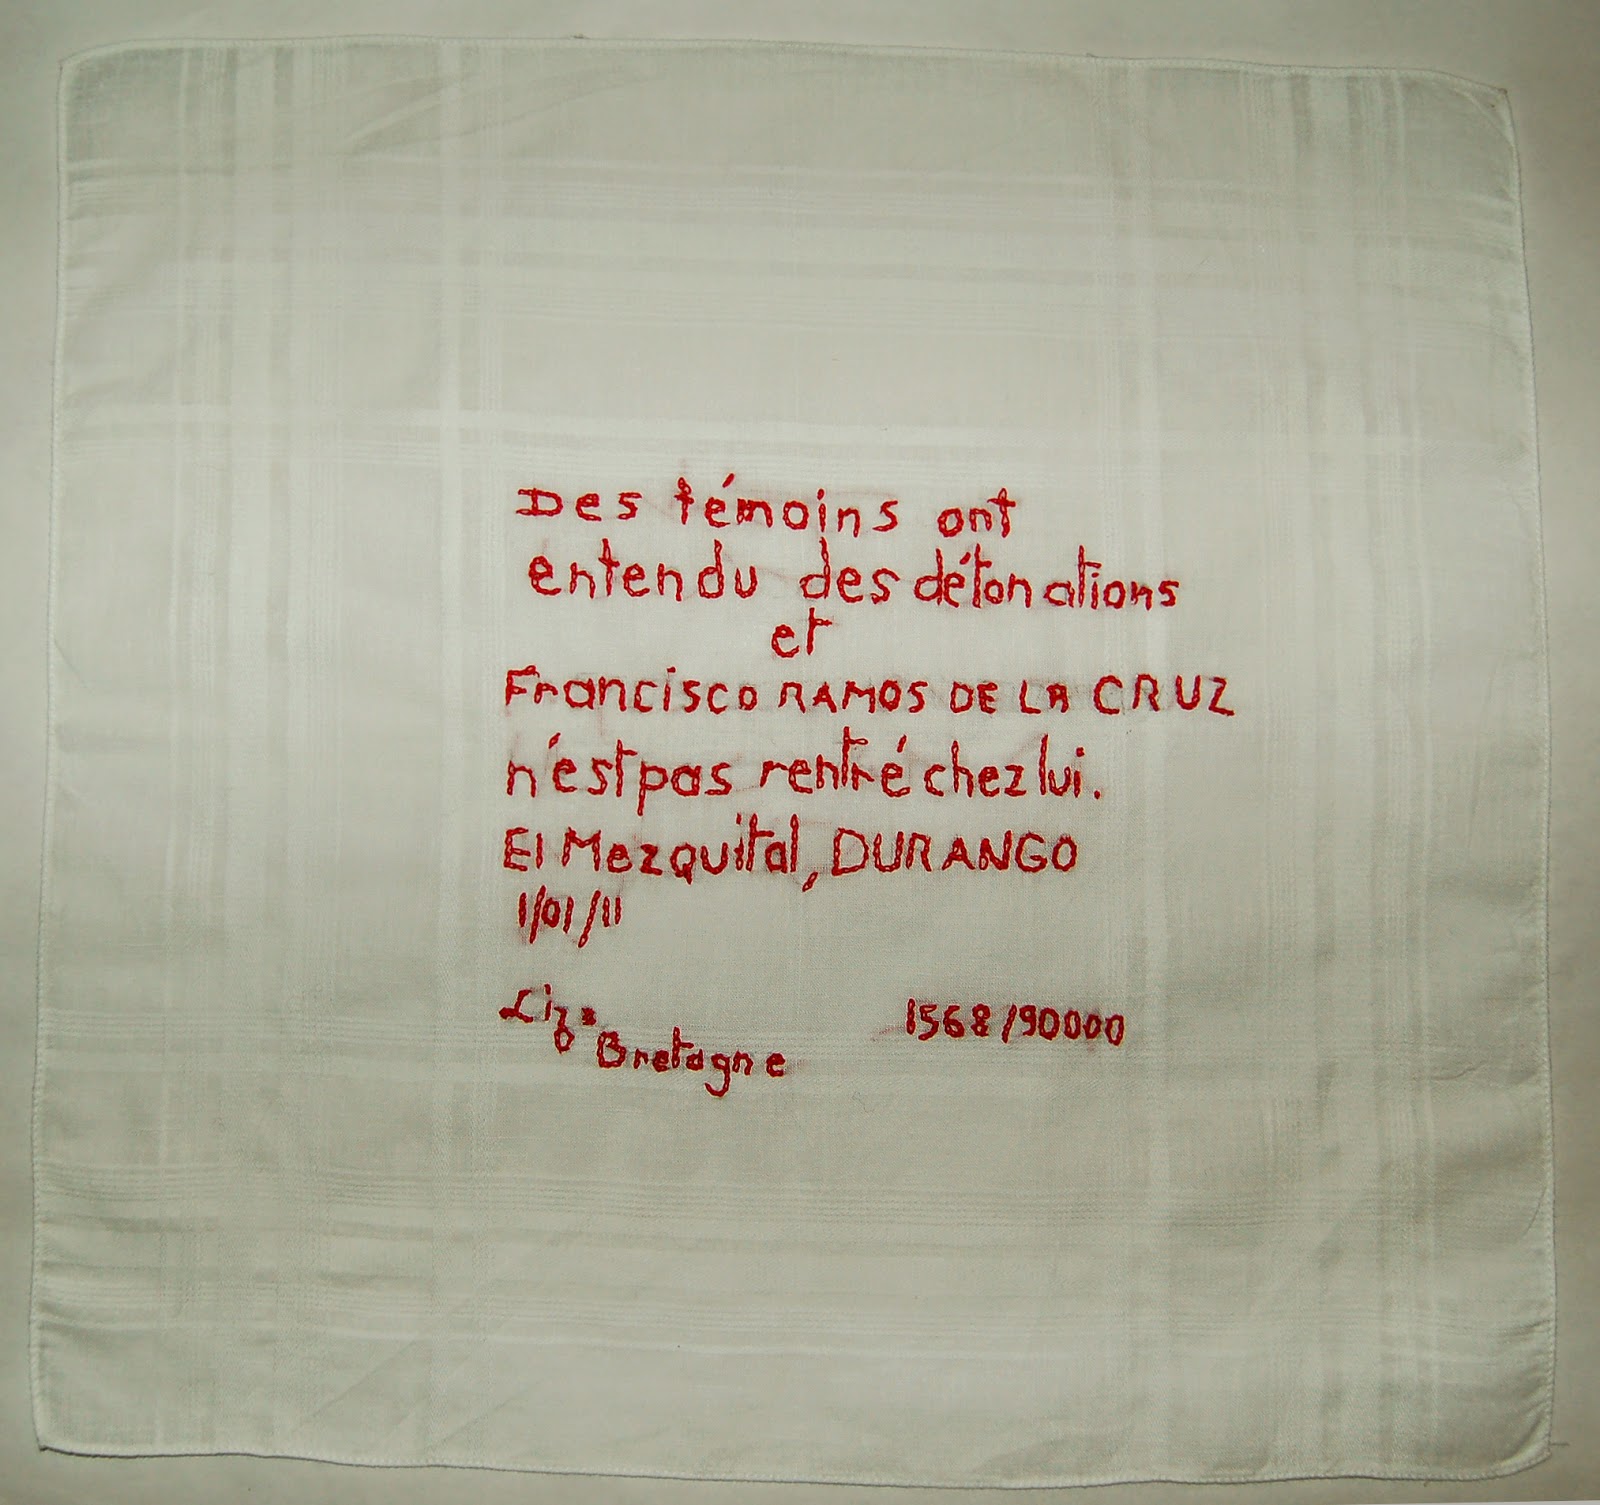 Des témoins ont
entendu des détonations
et
Francisco RAMOS DE LA CRUZ
n'est pas rentré chez lui.
El Mezquital, DURANGO
1/01/11
1568/90000
Bretagne